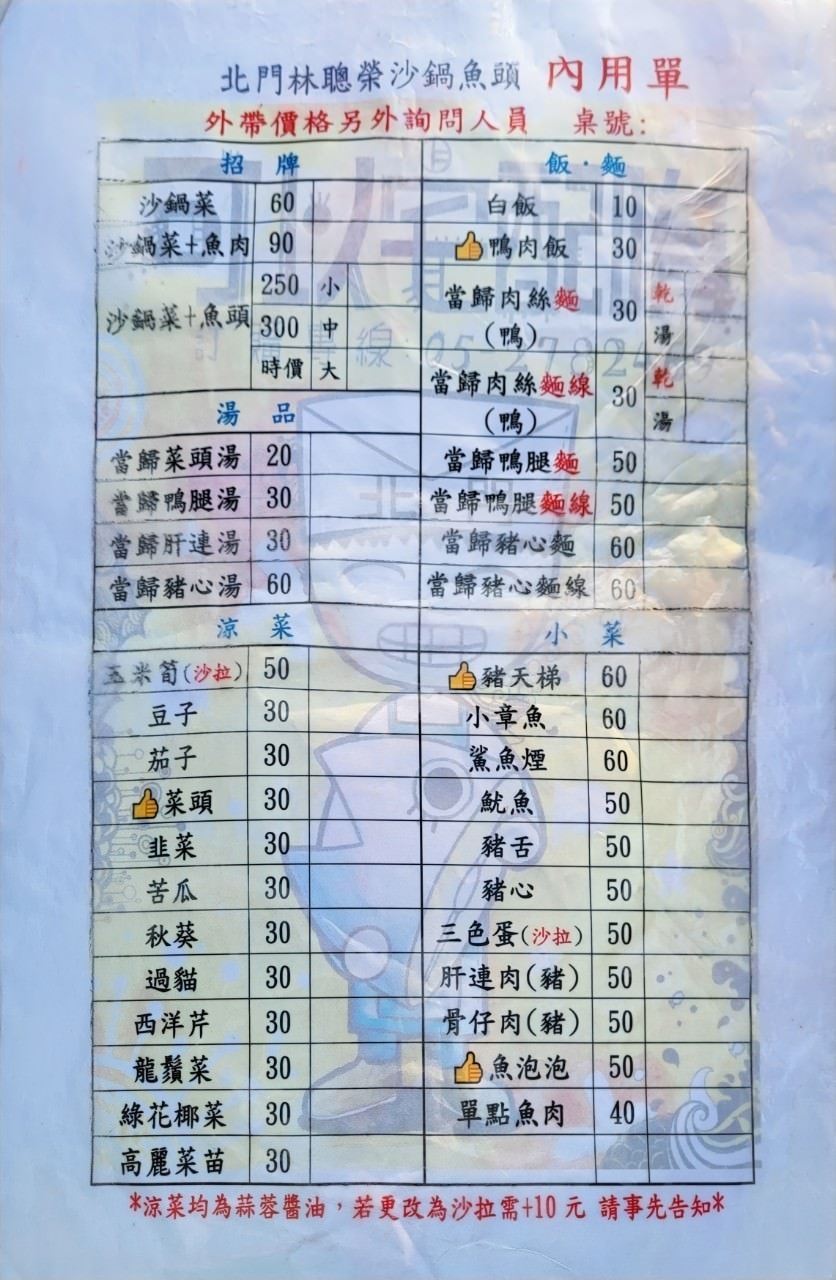 北門林聰榮沙鍋魚頭 內用單
外帶價格另外詢問人員 桌號:
招牌
沙鍋菜 60
沙鍋菜+魚肉 90
沙鍋菜+魚頭
250 小
300 中
時價 大
湯品
當歸菜頭湯 20
當歸鴨腿湯 30
當歸肝連湯 30
當歸豬心湯 60
飯·麵
白飯 10
👍鴨肉飯 30
當歸肉絲麵 30 乾
(鴨) 湯
當歸肉絲麵線 30 乾
(鴨) 湯
當歸鴨腿麵 50
當歸鴨腿麵線 50
當歸豬心麵 60
當歸豬心麵線 60
涼菜
玉米筍(沙拉) 50
豆子 30
茄子 30
👍菜頭 30
韭菜 30
苦瓜 30
秋葵 30
過貓 30
西洋芹 30
龍鬚菜 30
綠花椰菜 30
高麗菜苗 30
小菜
👍豬天梯 60
小章魚 60
鯊魚煙 60
魷魚 50
豬舌 50
豬心 50
三色蛋(沙拉) 50
肝連肉(豬) 50
骨仔肉(豬) 50
👍魚泡泡 50
單點魚肉 40
*涼菜均為蒜蓉醬油，若更改為沙拉需+10 元 請事先告知*